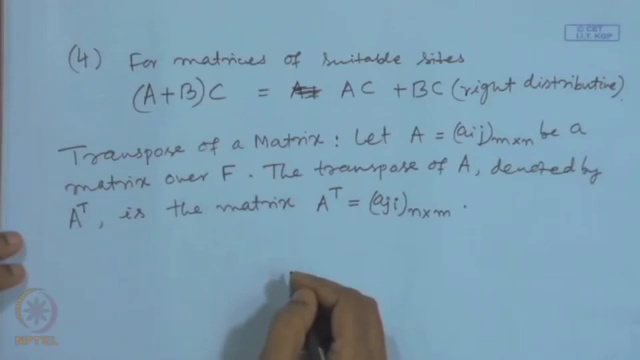 © CET
I.I.T. KGP
(4) For matrices of suitable sites
(A+B)C = AC + BC (right distributive)
Transpose of a Matrix: Let A = (aij)m×n be a
matrix over F. The transpose of A, denoted by
A^T, is the matrix A^T = (aji)n×m.
NPTEL